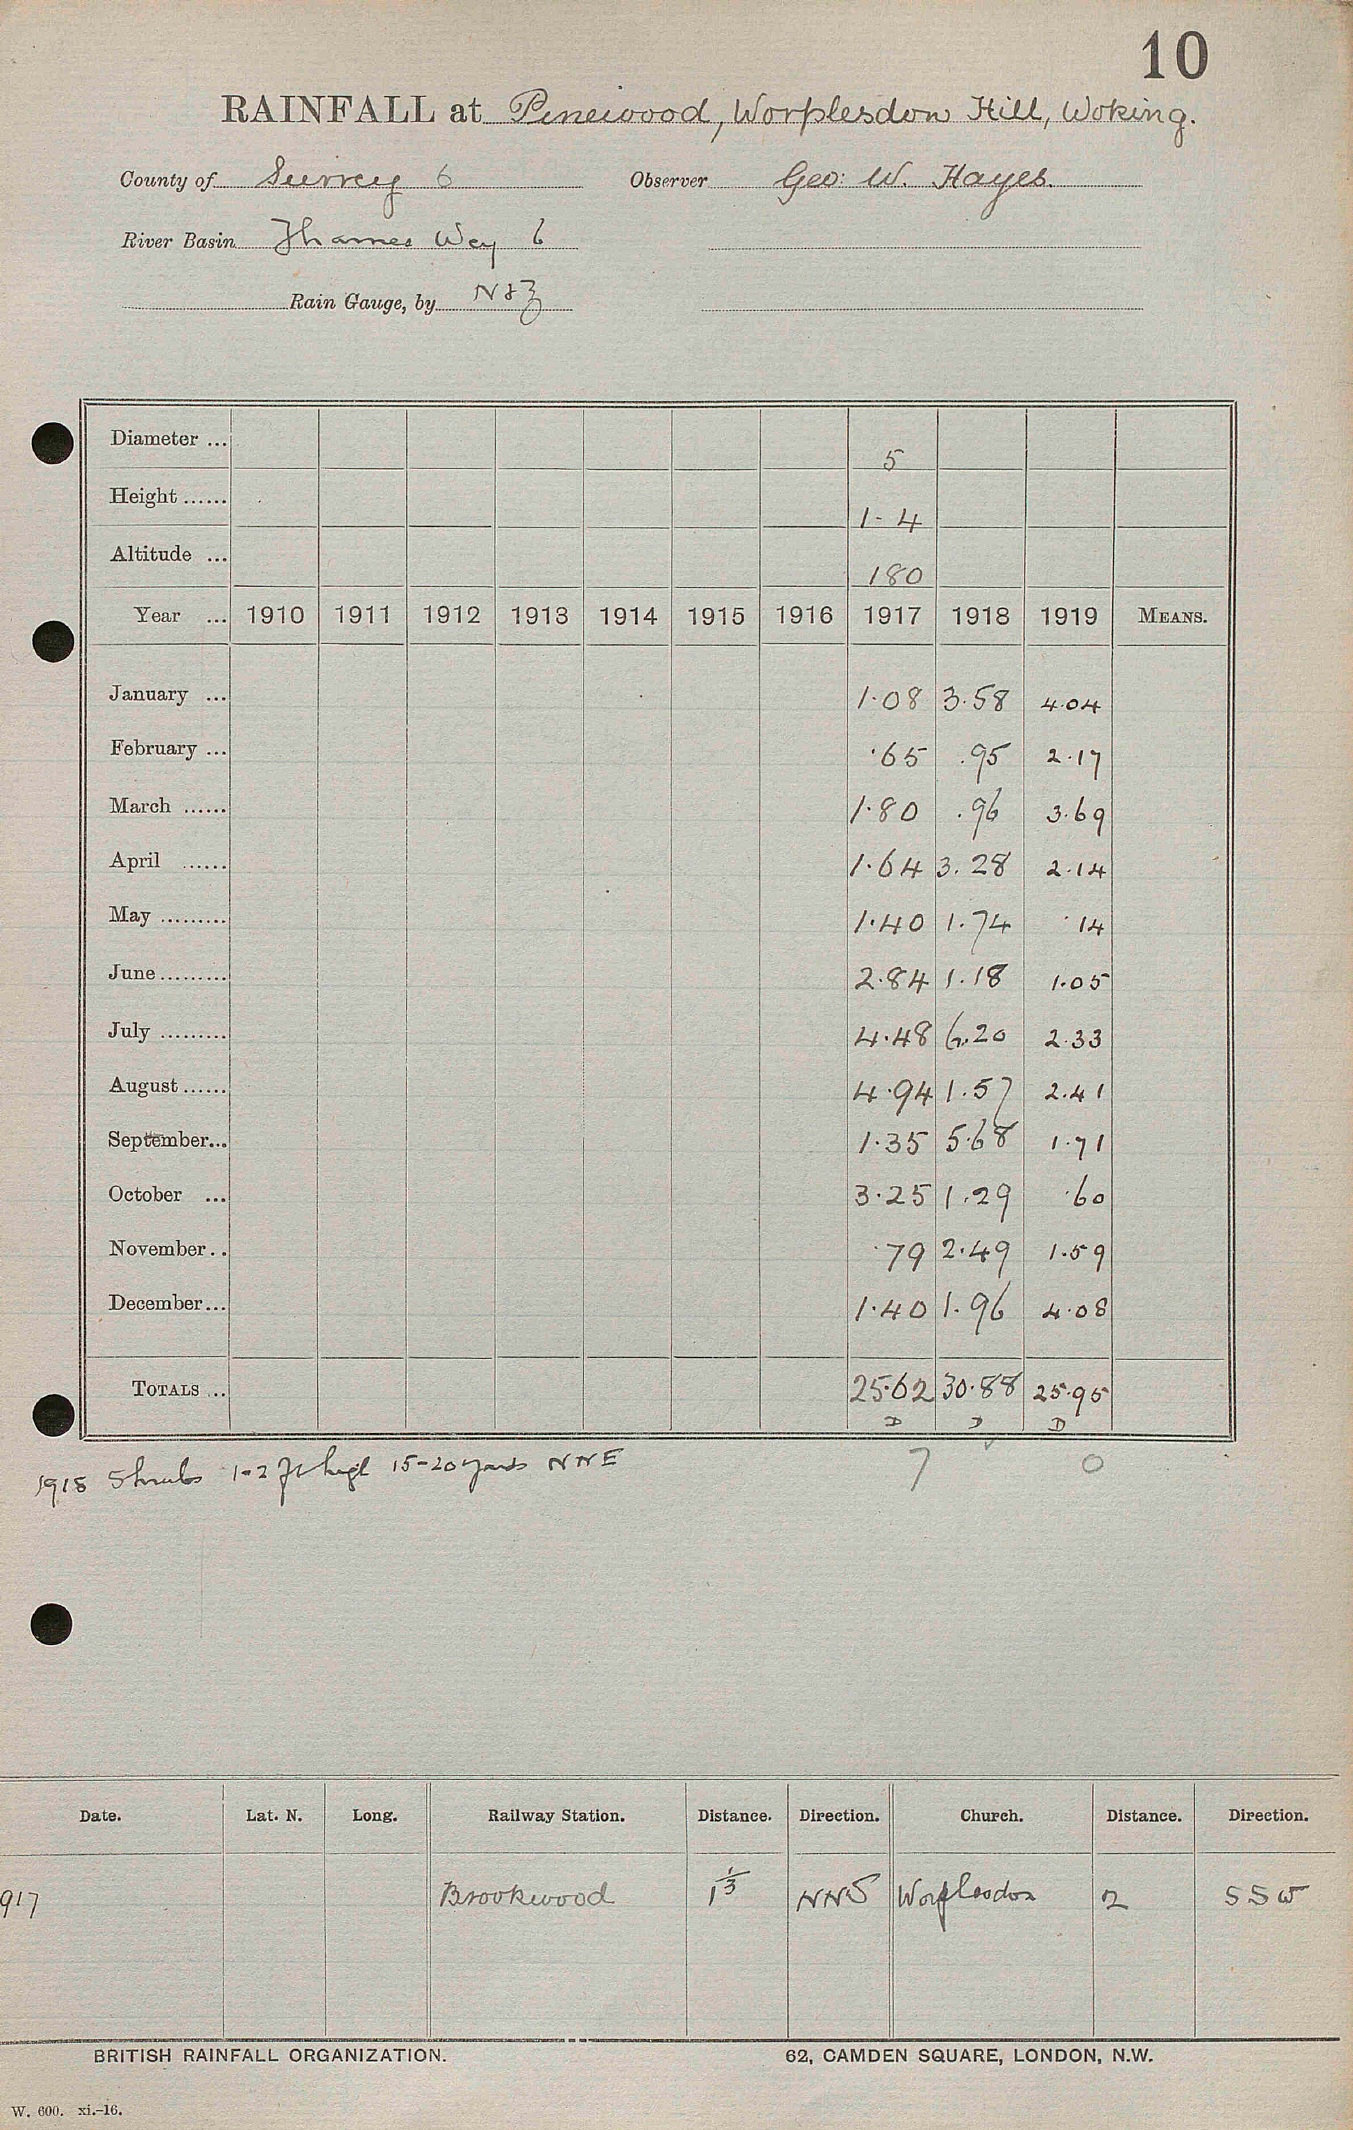 10
RAINFALL at Pinewood, Worplesdon Hill, Woking.
County of Surrey 6 Observer Geo: W. Hayes.
River Basin Thames Wey 6
Rain Gauge, by N & Z
Diameter ... 5
Height ...... 1-4
Altitude ... 180
Year ... 1910 1911 1912 1913 1914 1915 1916 1917 1918 1919 MEANS.
January ... 1.08 3.58 4.04
February ... .65 .95 2.17
March ...... 1.80 .96 3.69
April ...... 1.64 3.28 2.14
May ......... 1.40 1.74 .14
June ......... 2.84 1.18 1.05
July ......... 4.48 6.20 2.33
August ...... 4.94 1.57 2.41
September... 1.35 5.68 1.71
October ... 3.25 1.29 .60
November.. .79 2.49 1.59
December... 1.40 1.96 4.08
TOTALS ... 25.62 30.88 25.95
D D D
1918 Shrubs 1-2 ft high 15-20 yards NNE
7 0
Date. Lat. N. Long. Railway Station. Distance. Direction. Church. Distance. Direction.
917 Brookwood 1 1/3 Worplesdon 2 SSW
BRITISH RAINFALL ORGANIZATION. 62, CAMDEN SQUARE, LONDON, N.W.
W. 600. xi.-16.